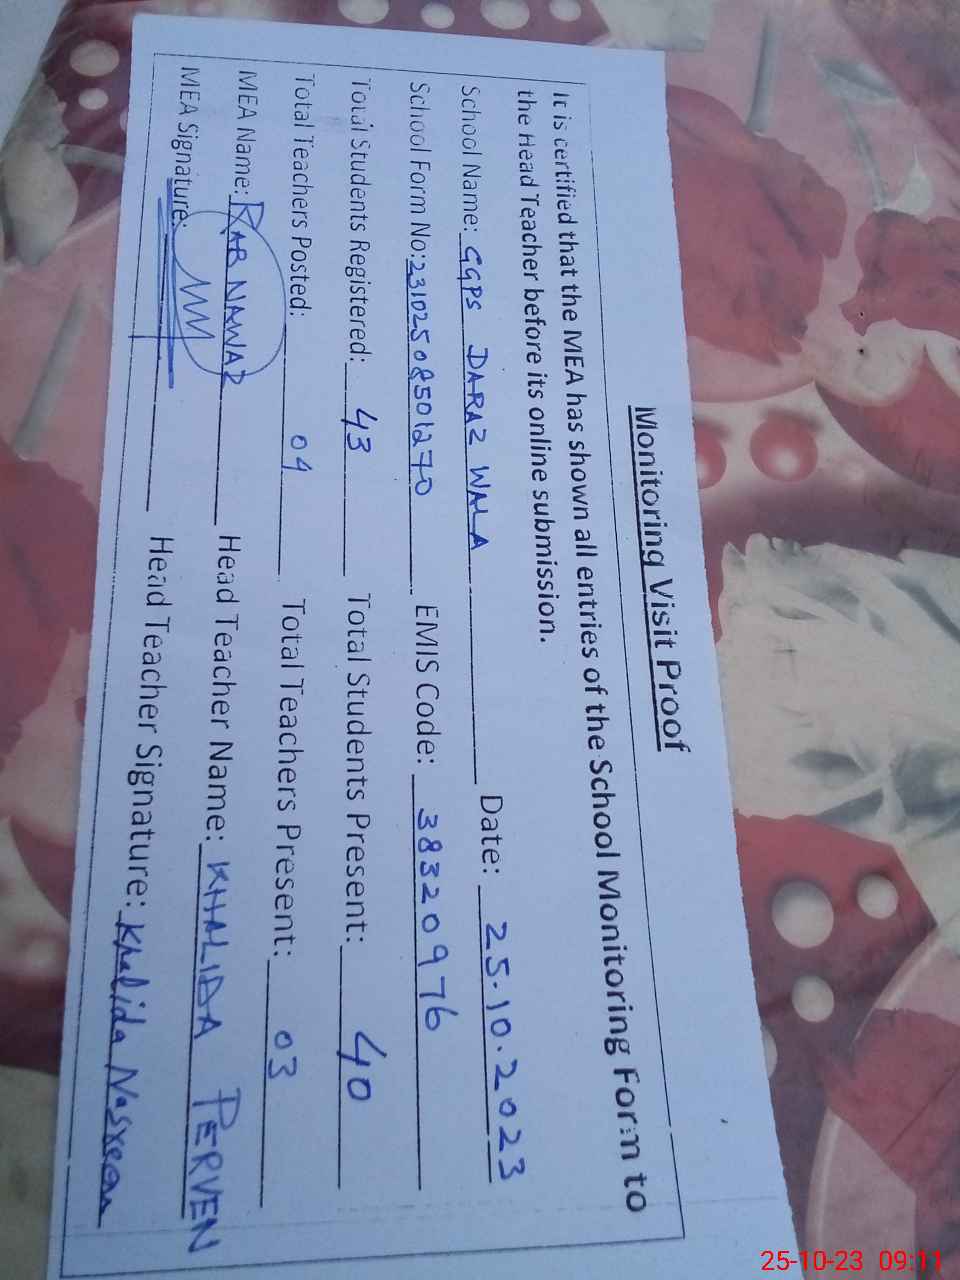 Monitoring Visit Proof
It is certified that the MEA has shown all entries of the School Monitoring Form to
the Head Teacher before its online submission.
School Name: GGPS DARAZ WALA Date: 25.10.2023
School Form No: 23102508501270 EMIS Code: 38320976
Total Students Registered: 43 Total Students Present: 40
Total Teachers Posted: 04 Total Teachers Present: 03
MEA Name: RAB NAWAZ Head Teacher Name: KHALIDA PERVEN
MEA Signature: Head Teacher Signature: Khalida Nasreen
25-10-23 09:11